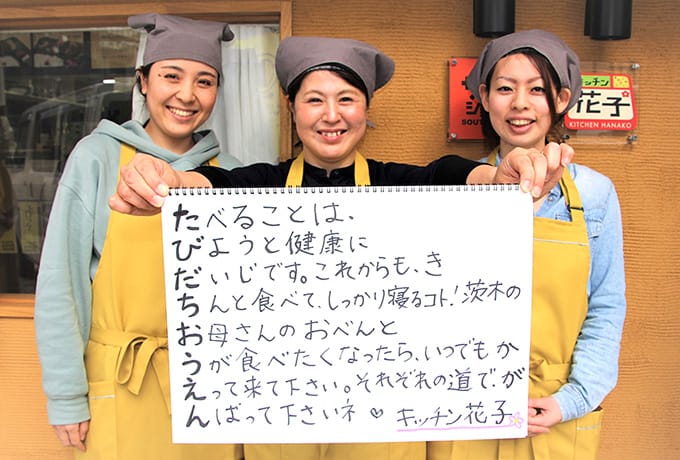 キッチン
花子
KITCHEN HANAKO
SOUT
たべることは、
びようと健康に
だいじです。これからも、き
ちんと食べて、しっかり寝るコト！茨木の
お母さんのおべんと
うが食べたくなったら、いつでもか
えって来て下さい。それぞれの道で、が
んばって下さいネ♡ キッチン花子